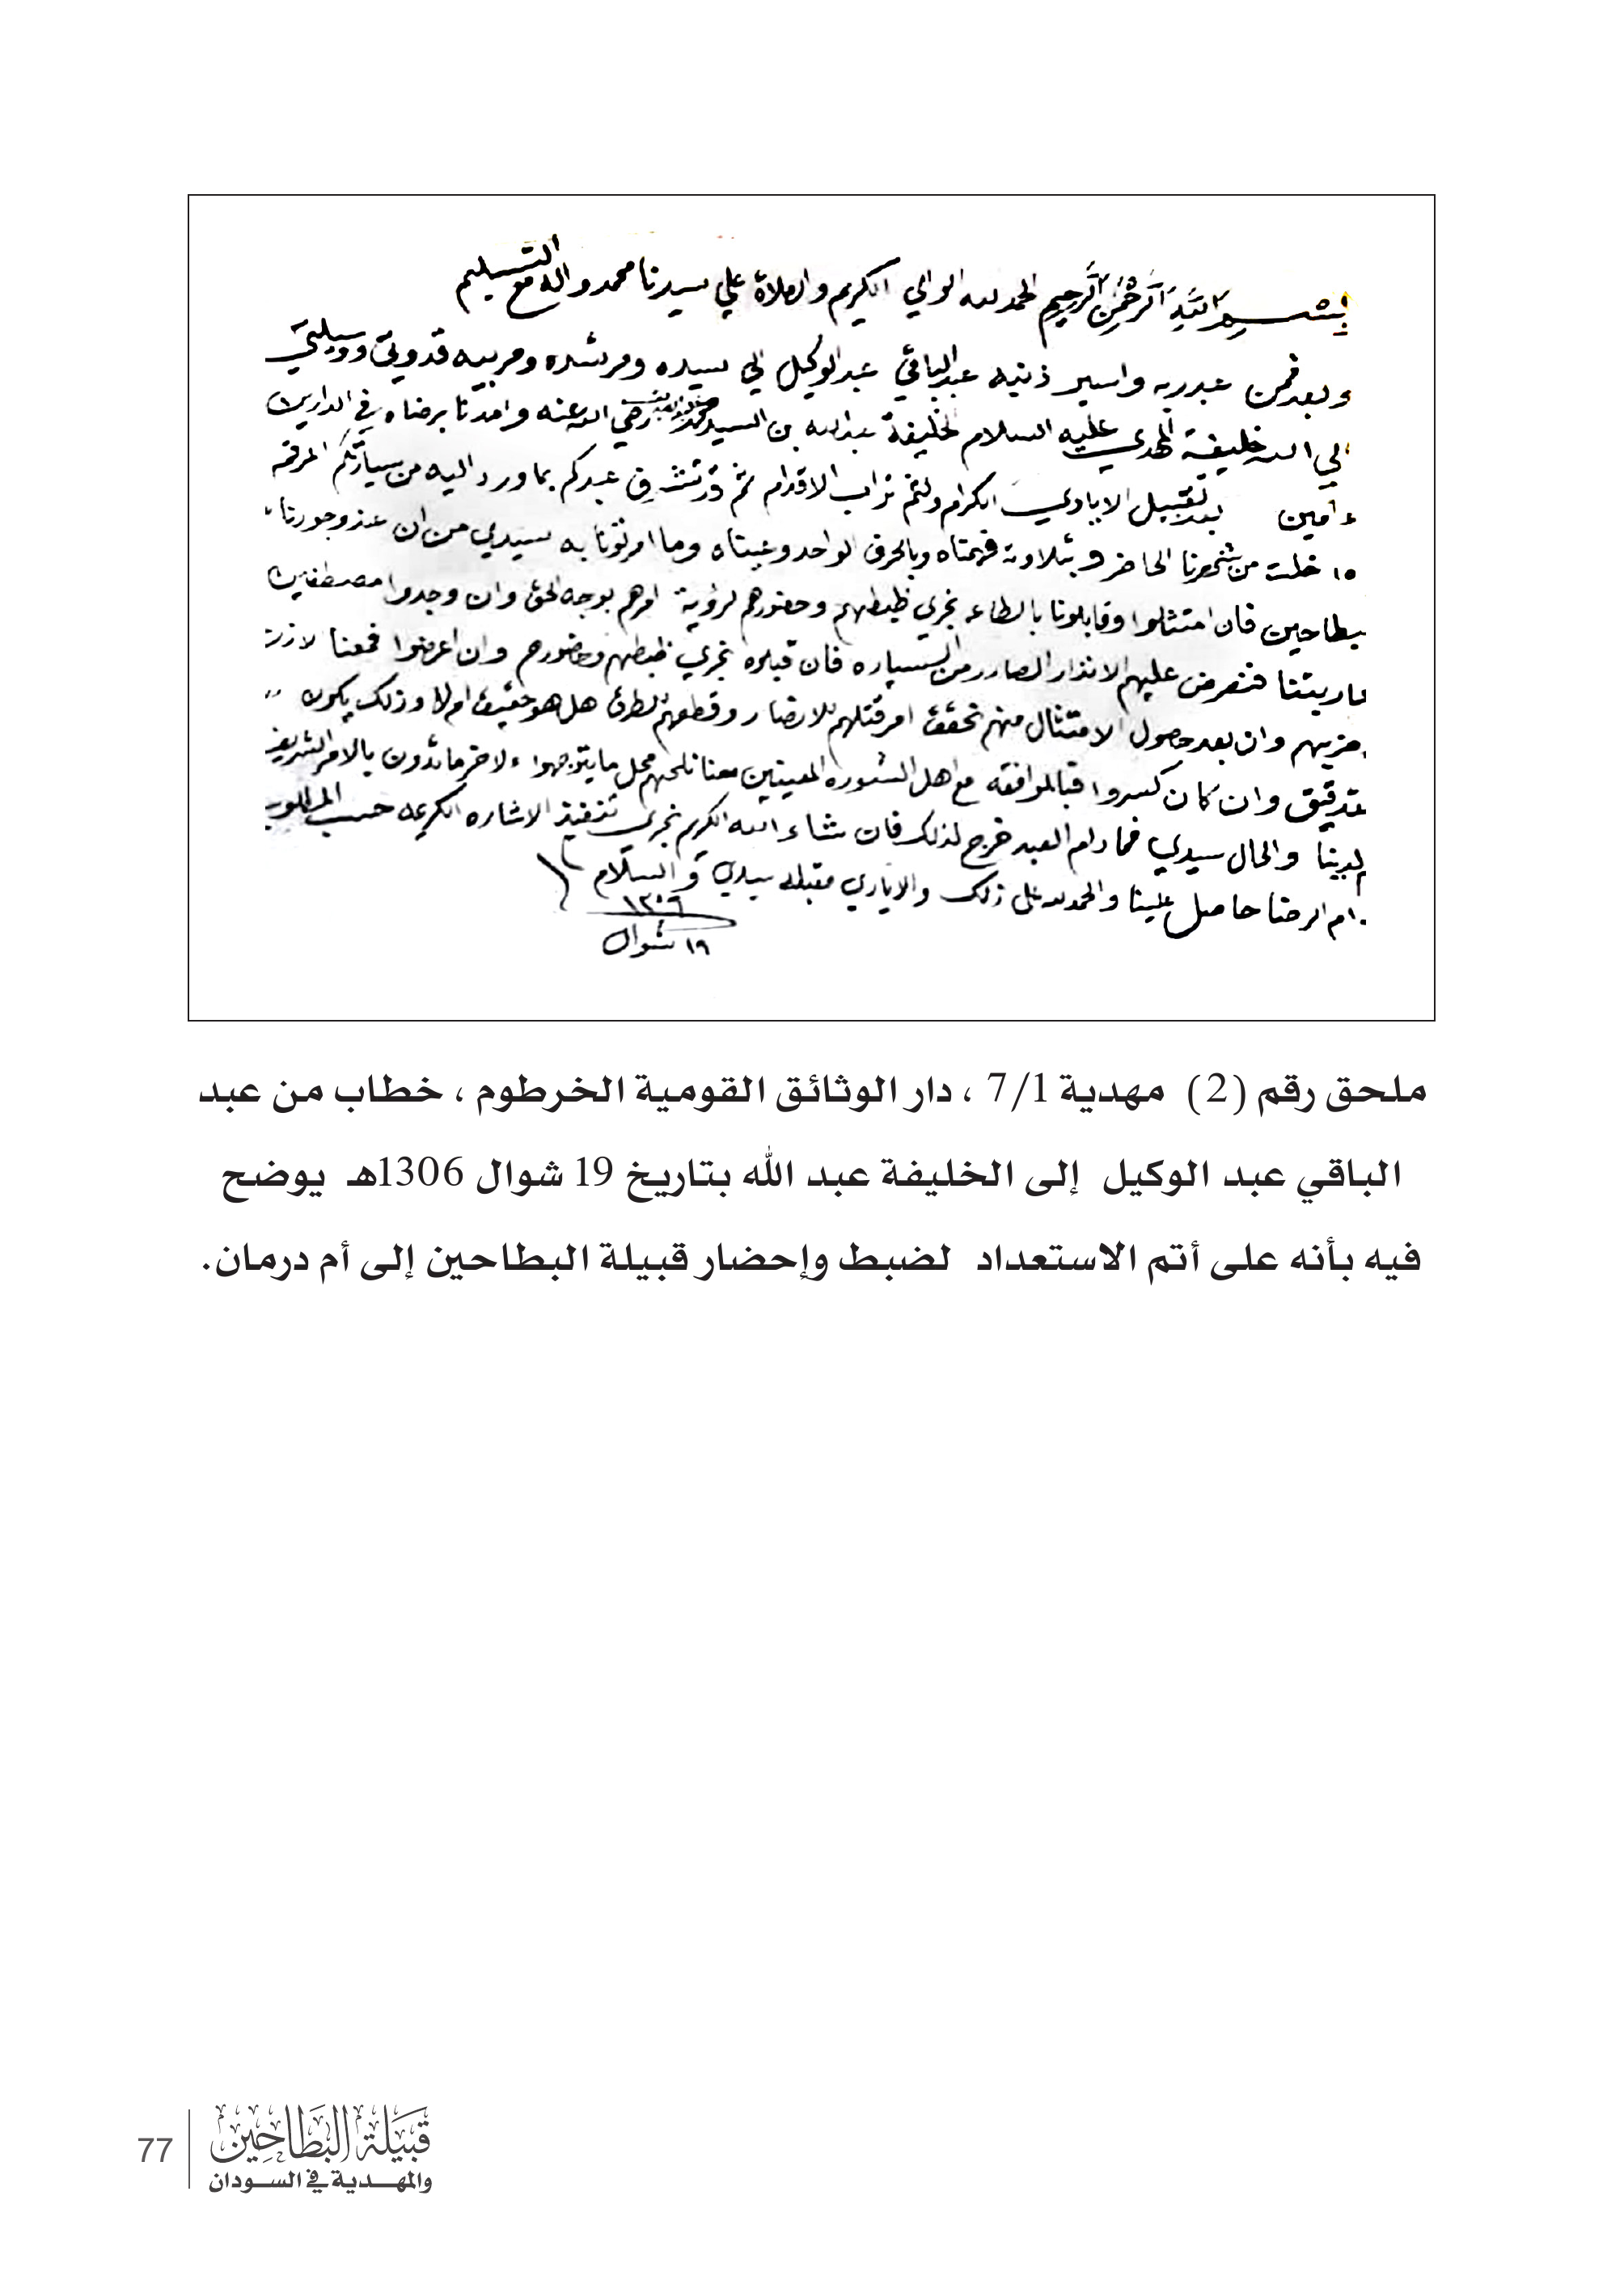 بسم الله الرحمن الرحيم الحمد لله الوالي الكريم والصلاة علي سيدنا محمد واله مع التسليم
وبعد فمن عبد ربه واسير ذنبه عبد الباقي عبد الوكيل الي سيده ومرشده ومربيه قدوتي ووسيلتي
الي الله خليفة المهدي عليه السلام الخليفة عبد الله بن السيد محمد رضي الله عنه وامدنا برضاه في الدارين
ءامين بعد تقبيل الايادي الكرام ولثم تراب الاقدام ثم قد تشرف عبدكم بما ورد اليه من سيادتكم المرقم
١٥ خلت من شهرنا الحاضر و بتلاوته فهمناه وبالحرف الواحد وعيناه وما امرتونا به سيدي من ان عند وجودنا
بطاحين فان امتثلوا وقابلونا بالطاعه نجري ظبطهم وحضورهم لرؤية امرهم بوجه الحق وان وجدوا مصطفين
حاربتنا فنعرض عليهم الانذار الصادر من السياده فان قبلوه نجري ظبطهم وحضورهم وان اعرضوا
حزبهم وان بعد حصول الامتثال منهم نحقق امر قتلهم للانصار وقطعهم لطرق هل هو حقيق ام لا وذلك يكون
بتدقيق وان كان كسروا فبالموافقه مع اهل الشوره المعينين معنا نلحقهم محل ما يتوجهوا بالامر الشريف
لدينا والحال سيدي فما دام العبد خرج لذلك فان شاء الله الكريم نجري تنفيذ الاشاره الكريمه حسب المطلوب
دام الرضا حاصل علينا والحمد لله على ذلك والايادي مقبله سيدي و السلام
١٣٠٦
١٩ شوال
ملحق رقم (2) مهدية 7/1 ، دار الوثائق القومية الخرطوم ، خطاب من عبد
الباقي عبد الوكيل إلى الخليفة عبد الله بتاريخ 19 شوال 1306هـ يوضح
فيه بأنه على أتم الاستعداد لضبط وإحضار قبيلة البطاحين إلى أم درمان.
قَبيلَة البَطَاحِين
والمهدية في السودان
77